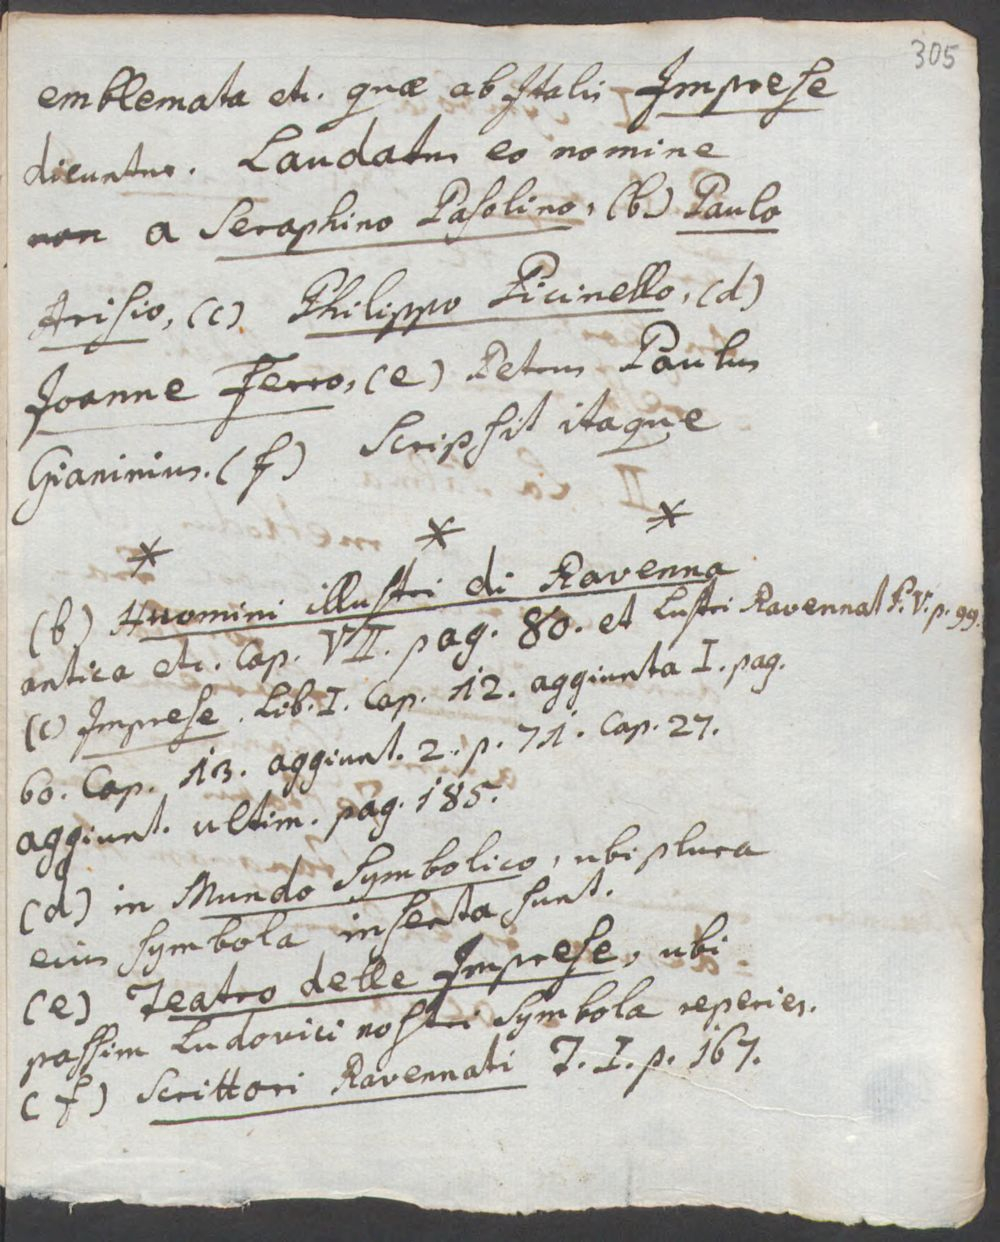 305
emblemata etc. quæ ab Italis Imprese
dicuntur. Laudatus eo nomine
non a Seraphino Pasolino, (b) Paulo
Arisio, (c) Philippo Picinello, (d)
Joanne Ferro, (e) Petrus Paulus
Gianinius. (f) Scripsit itaque
* * *
(b) Huomini illustri di Ravenna
antica etc. Cap. VII. pag. 80. et Lustri Ravennat P. V. p. 99.
(c) Imprese. Lib. I. Cap. 12. aggiunta I. pag.
60. Cap. 13. aggiunt. 2. p. 71. Cap. 27.
aggiunt. ultim. pag. 185.
(d) in Mundo Symbolico, ubi plura
eius symbola inserta sunt.
(e) Teatro delle Imprese, ubi
passim Ludovici nostri Symbola reperies.
(f) Scrittori Ravennati T. I. p. 167.